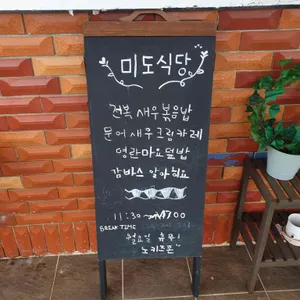 미도식당
전복 새우볶음밥
문어새우크림카레
명란마요덮밥
감바스 알아히요
11:30~17:00
BREAK TIME
월요일 휴무!
노키즈존